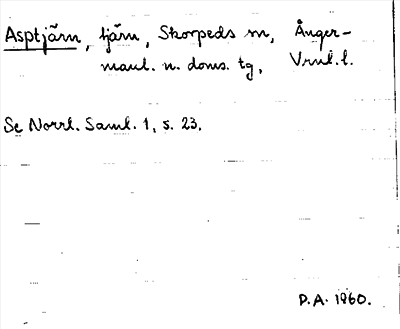 Asptjärn, tjärn, Skorpeds sn, Ånger-
manl. n. doms. tg, Vrnl. l.
Se Norrl. Saml. 1, s. 23.
P.A. 1960.